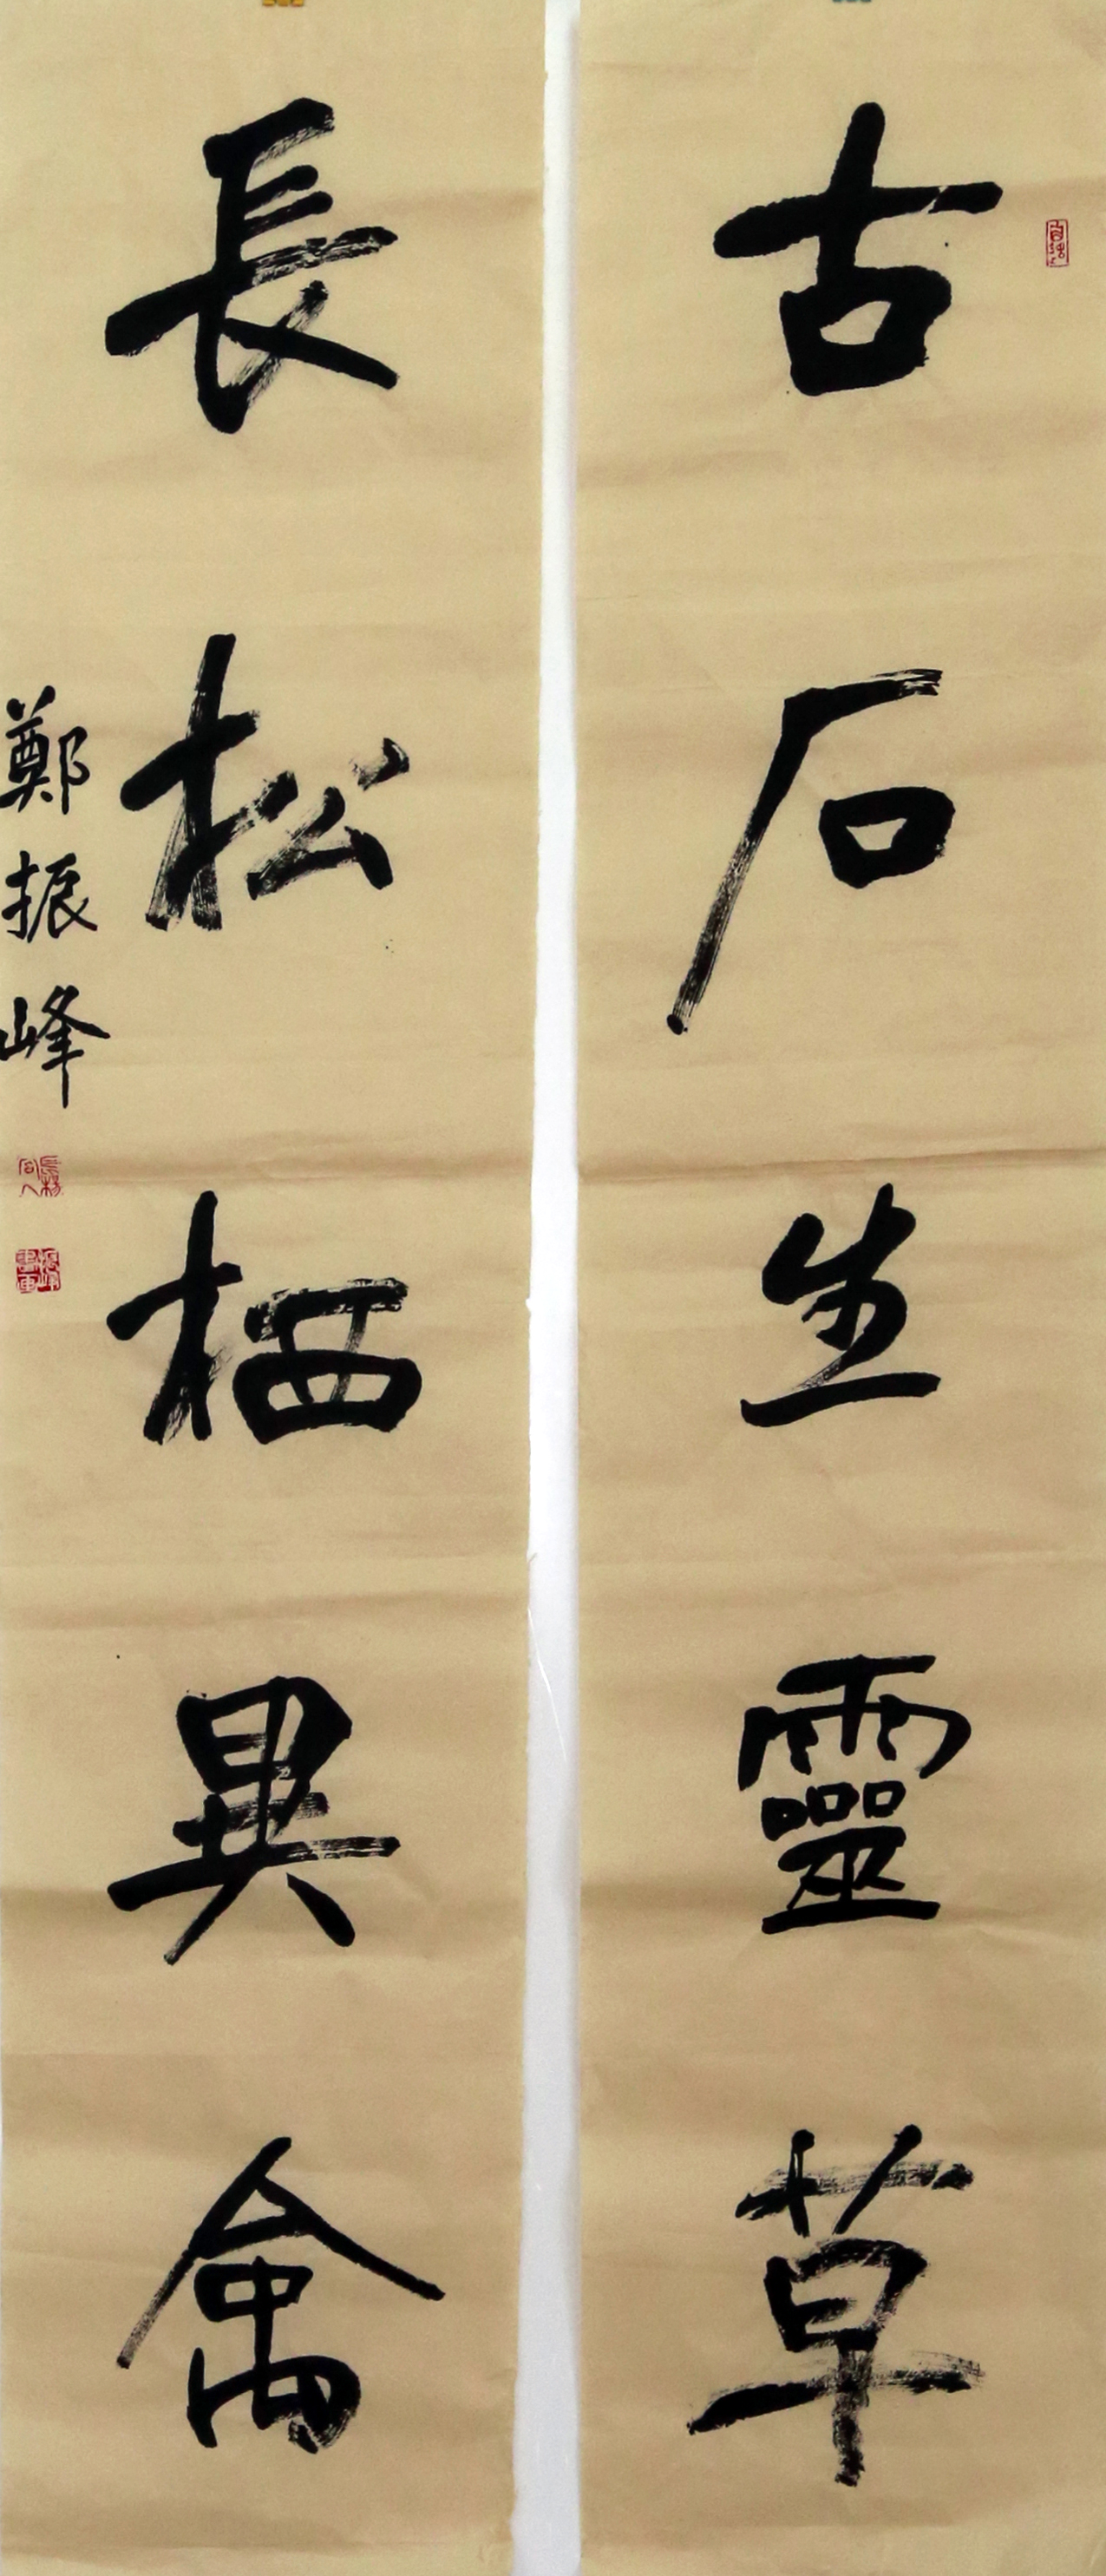 古石生靈草
長松栖異禽
鄭振峰